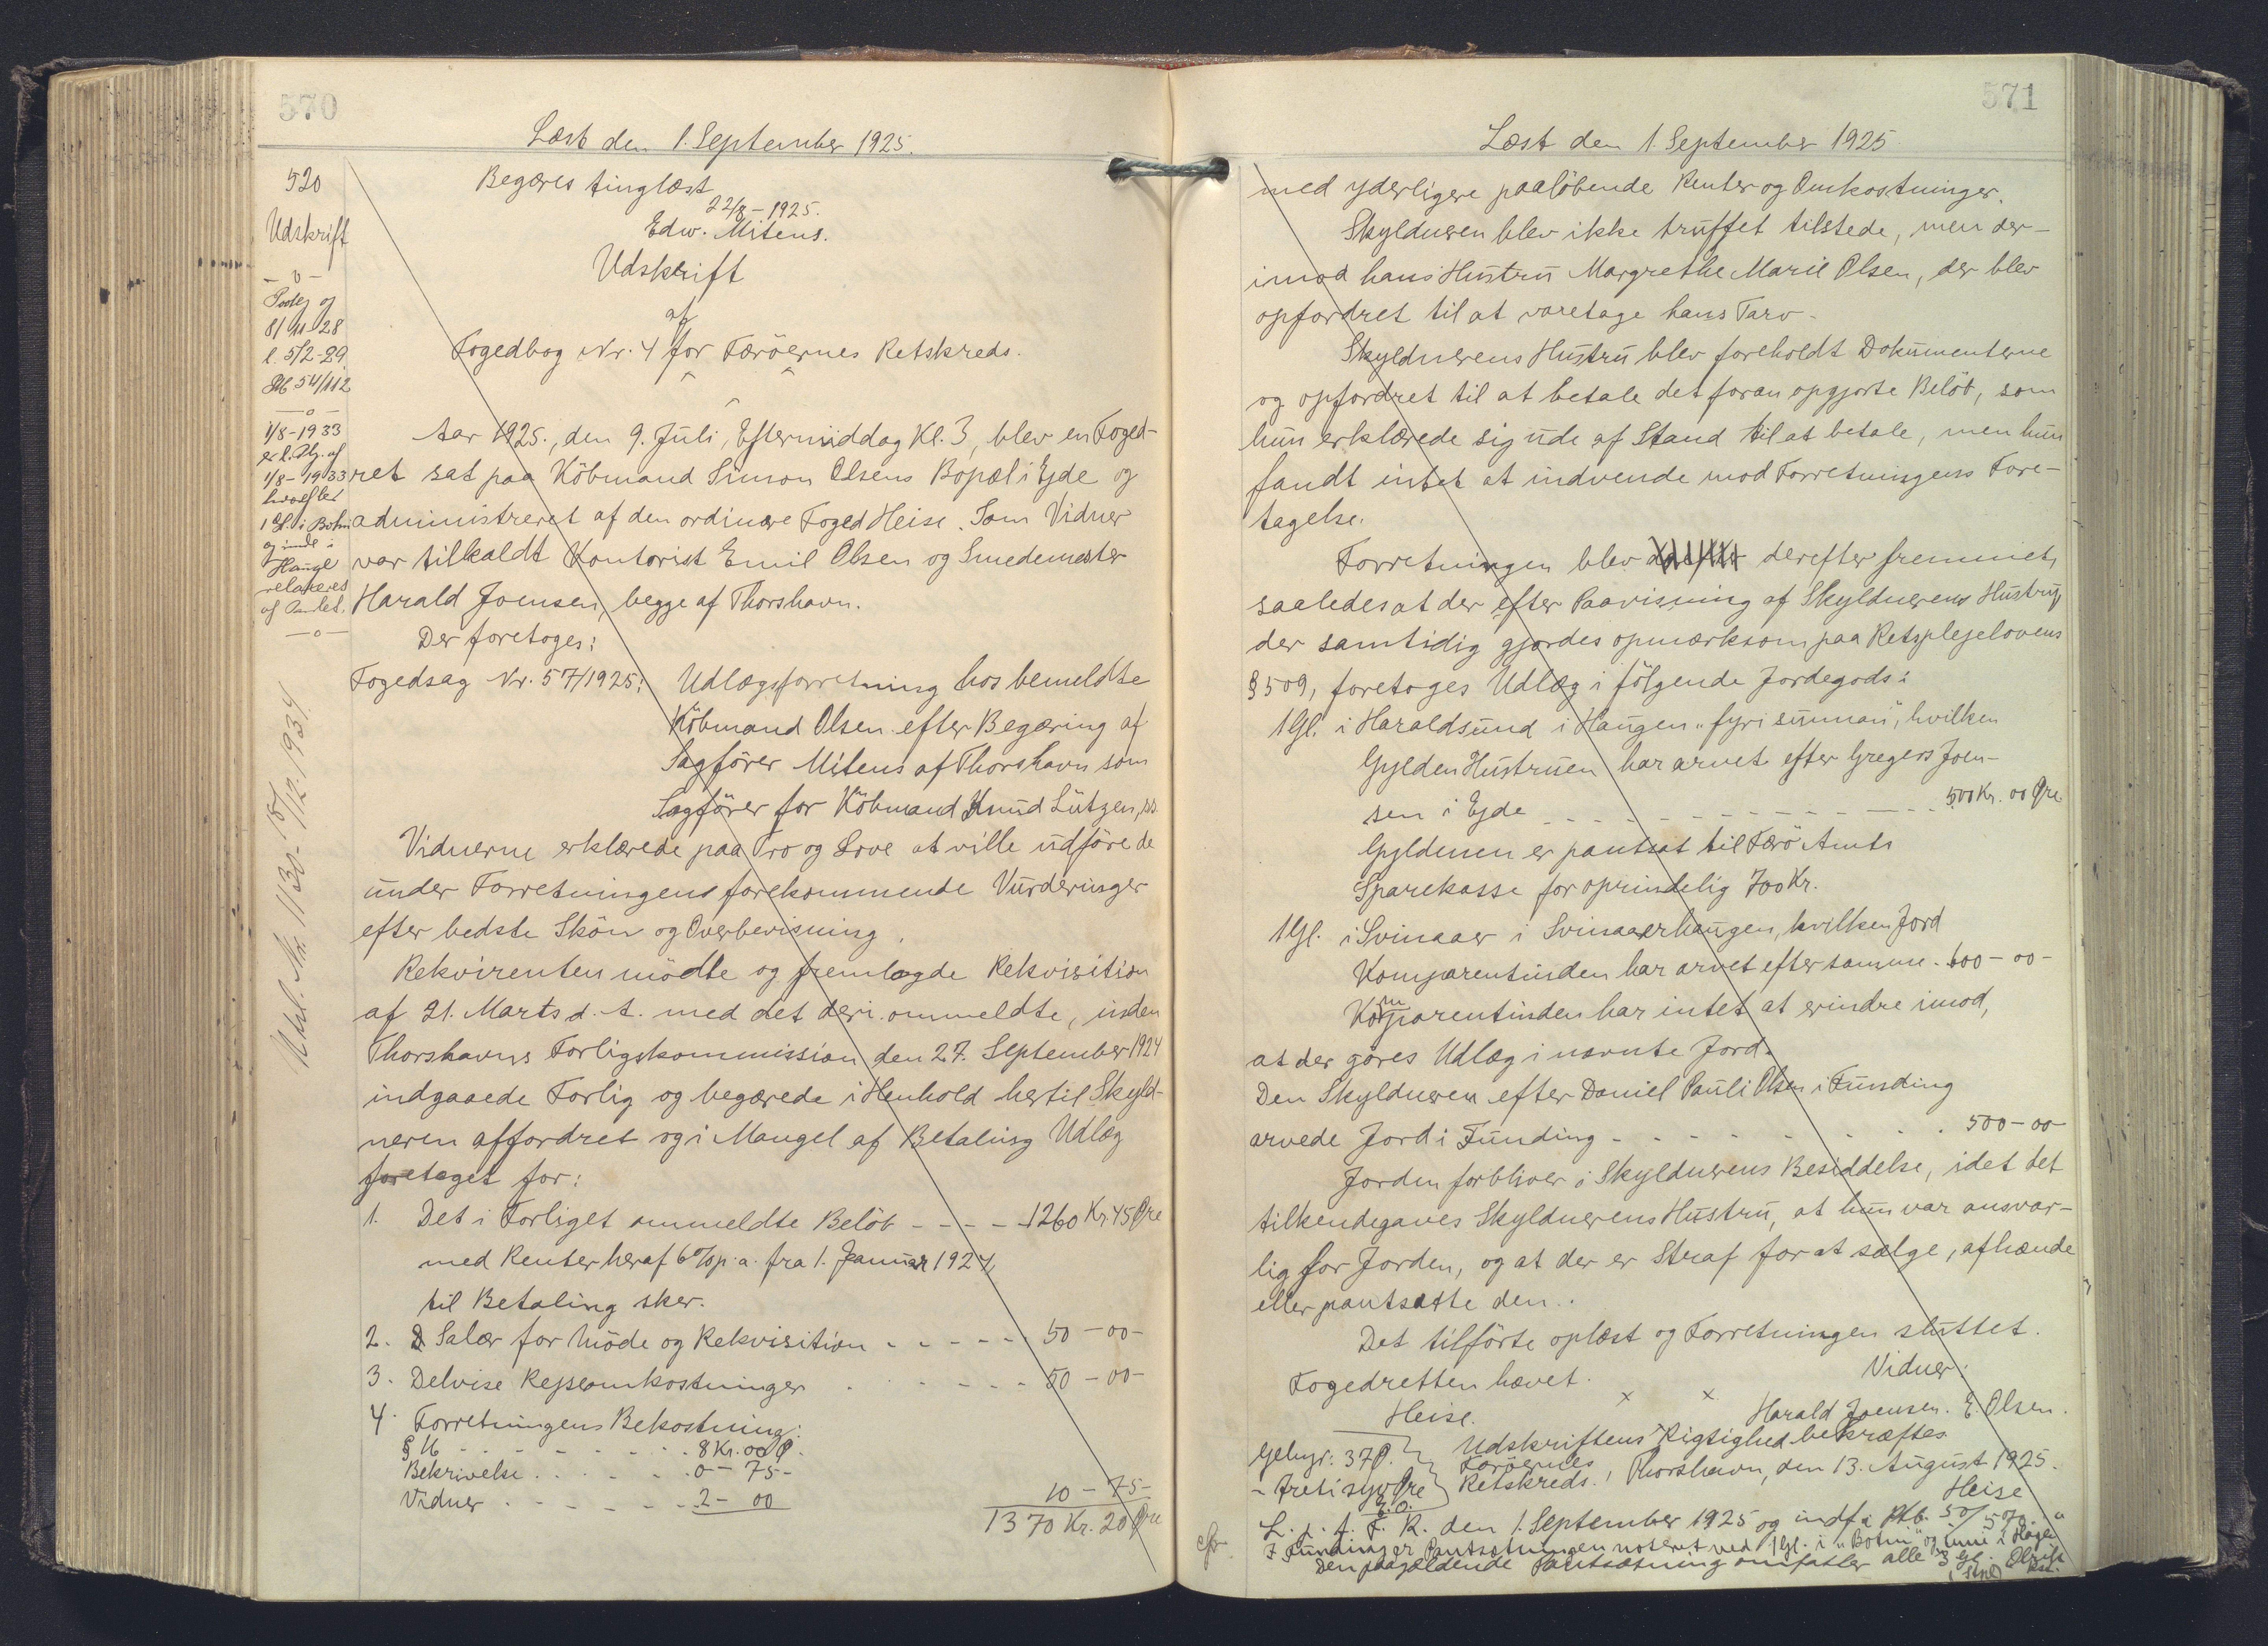 570
Læst den 1. September 1925.
520
Udskrift
- o -
8/11-28
l. 5/2-29
Pb. 54/112
- o -
1/8-1933
er l. Afg. af
1/8-1933
hvorefter
1 Gl. i Botni
og inde i
Haugl
relaxeres
af Pantet.
- o -
Begæres tinglæst
22/8-1925.
Edw. Mitens.
Udskrift
af
Fogedbog Nr. 4 for Færöernes Retskreds.
Aar 1925., den 9. Juli, Eftermiddag Kl. 3, blev en Foged-
ret sat paa Köbmand Simon Olsens Bopæl i Ejde og
administreret af den ordinære Foged Heise. Som Vidner
var tilkaldt Kontorist Emil Olsen og Smedemester
Harald Joensen, begge af Thorshavn.
Der foretoges:
Fogedsag Nr. 57/1925: Udlægsforretning hos bemeldte
Köbmand Olsen efter Begæring af
Sagförer Mitens af Thorshavn som
Sagförer for Köbmand Knud Lützen, ss.
Vidnerne erklærede paa Tro og Love at ville udföre de
under Forretningens forekommende Vurderinger
efter bedste Skön og Overbevisning.
Rekvirenten mödte og fremlagde Rekvisition
af 21. Marts d. A. med det deri ommeldte, inden
Thorshavns Forligskommission den 27. September 1924
indgaaede Forlig og begærede i Henhold hertil Skyld-
neren affordret og i Mangel af Betaling Udlæg
foretaget for:
1. Det i Forliget ommeldte Belöb - - - - 1260 Kr. 45 Øre
med Renter heraf 6% p.a. fra 1. Januar 1924,
til Betaling sker.
2. Salær for Möde og Rekvisition - - - - - 50 - 00 -
3. Delvise Rejseomkostninger - - - - 50 - 00 -
4. Forretningens Bekostning:
§ 16 - - - - - - 8 Kr. 00 Ø.
Bekrivelse . . . . . 0 - 75 -
Vidner . - - - - - 2 - 00
10 - 75 -
1370 Kr. 20 Øre
571
Læst den 1. September 1925
med yderligere paalöbende Renter og Omkostninger.
Skyldneren blev ikke truffet tilstede, men der-
imod hans Hustru Margrethe Marie Olsen, der blev
opfordret til at varetage hans Tarv.
Skyldnerens Hustru blev foreholdt Dokumenterne
og opfordret til at betale det foran opgjorte Belöb, som
hun erklærede sig ude af Stand til at betale, men hun
fandt intet at indvende mod Forretningens Fore-
tagelse.
Forretningen blev derefter fremmet,
saaledes at der efter Paavisning af Skyldnerens Hustru,
der samtidig gjordes opmærksom paa Retsplejelovens
§ 509, foretoges Udlæg i fölgende Jordegods:
1 Gl. i Haraldsund i Haugen "fyri sunnan", hvilken
Gylden Hustruen har arvet efter Gregers Joen-
sen i Ejde - - - - - - - - - 500 Kr. 00 Øre
Gyldenen er pantsat til Færö Amts
Sparekasse for oprindelig 700 Kr.
1 Gl. i Svinaaer i Svinaaerhaugen, hvilken Jord
Komparentinden har arvet efter samme. 600 - 00 -
Komparentinden har intet at erindre imod,
at der göres Udlæg i nævnte Jord.
Den Skyldneren efter Daniel Pauli Olsen i Funding
arvede Jord i Funding - - - - - - - - 500 - 00 -
Jorden forbliver i Skyldnerens Besiddelse, idet det
tilkendegaves Skyldnerens Hustru, at hun var ansvar-
lig for Jorden, og at der er Straf for at sælge, afhænde
eller pantsætte den.
Det tilförte oplæst og Forretningen sluttet.
Fogedretten hævet. Vidner:
Heise. x x Harald Joensen. E. Olsen.
Gebyr: 37 Ø. Udskriftens Rigtighed bekræftes
- Tretisyv Øre Færöernes Retskreds, Thorshavn, den 13. August 1925.
E.O. Heise
L. i. f. F. R. den 1. September 1925 og indf. i Ptb. 50/570.
I Fundinger Pantsætningen noteret ved 1 Gl. i "Botni" og inni i Hagl"
Den paagældende Pantsætning omfatter alle 3 Gl.
Utsl. Nr. 1130-15/12 1934.